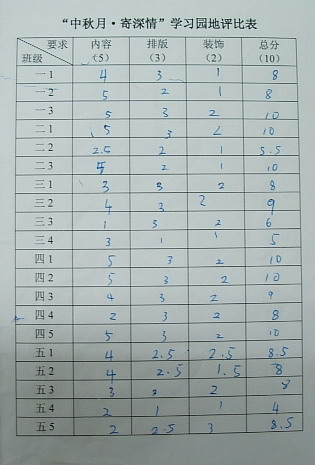 “中秋月·寄深情”学习园地评比表
要求 内容 排版 装饰 总分
班级 (5) (3) (2) (10)
一1 4 3 1 8
一2 5 2 1 8
一3 5 3 2 10
二1 5 3 2 10
二2 2.5 2 1 5.5
二3 5 2 1 10
三1 3 3 2 8
三2 4 3 2 9
三3 1 3 2 6
三4 3 1 1 5
四1 5 3 2 10
四2 5 3 2 10
四3 4 3 2 9
四4 2 3 2 8
四5 5 3 2 10
五1 4 2.5 2.5 8.5
五2 4 2.5 1.5 8
五3 3 3 2 8
五4 2 1 1 4
五5 2 2.5 3 8.5